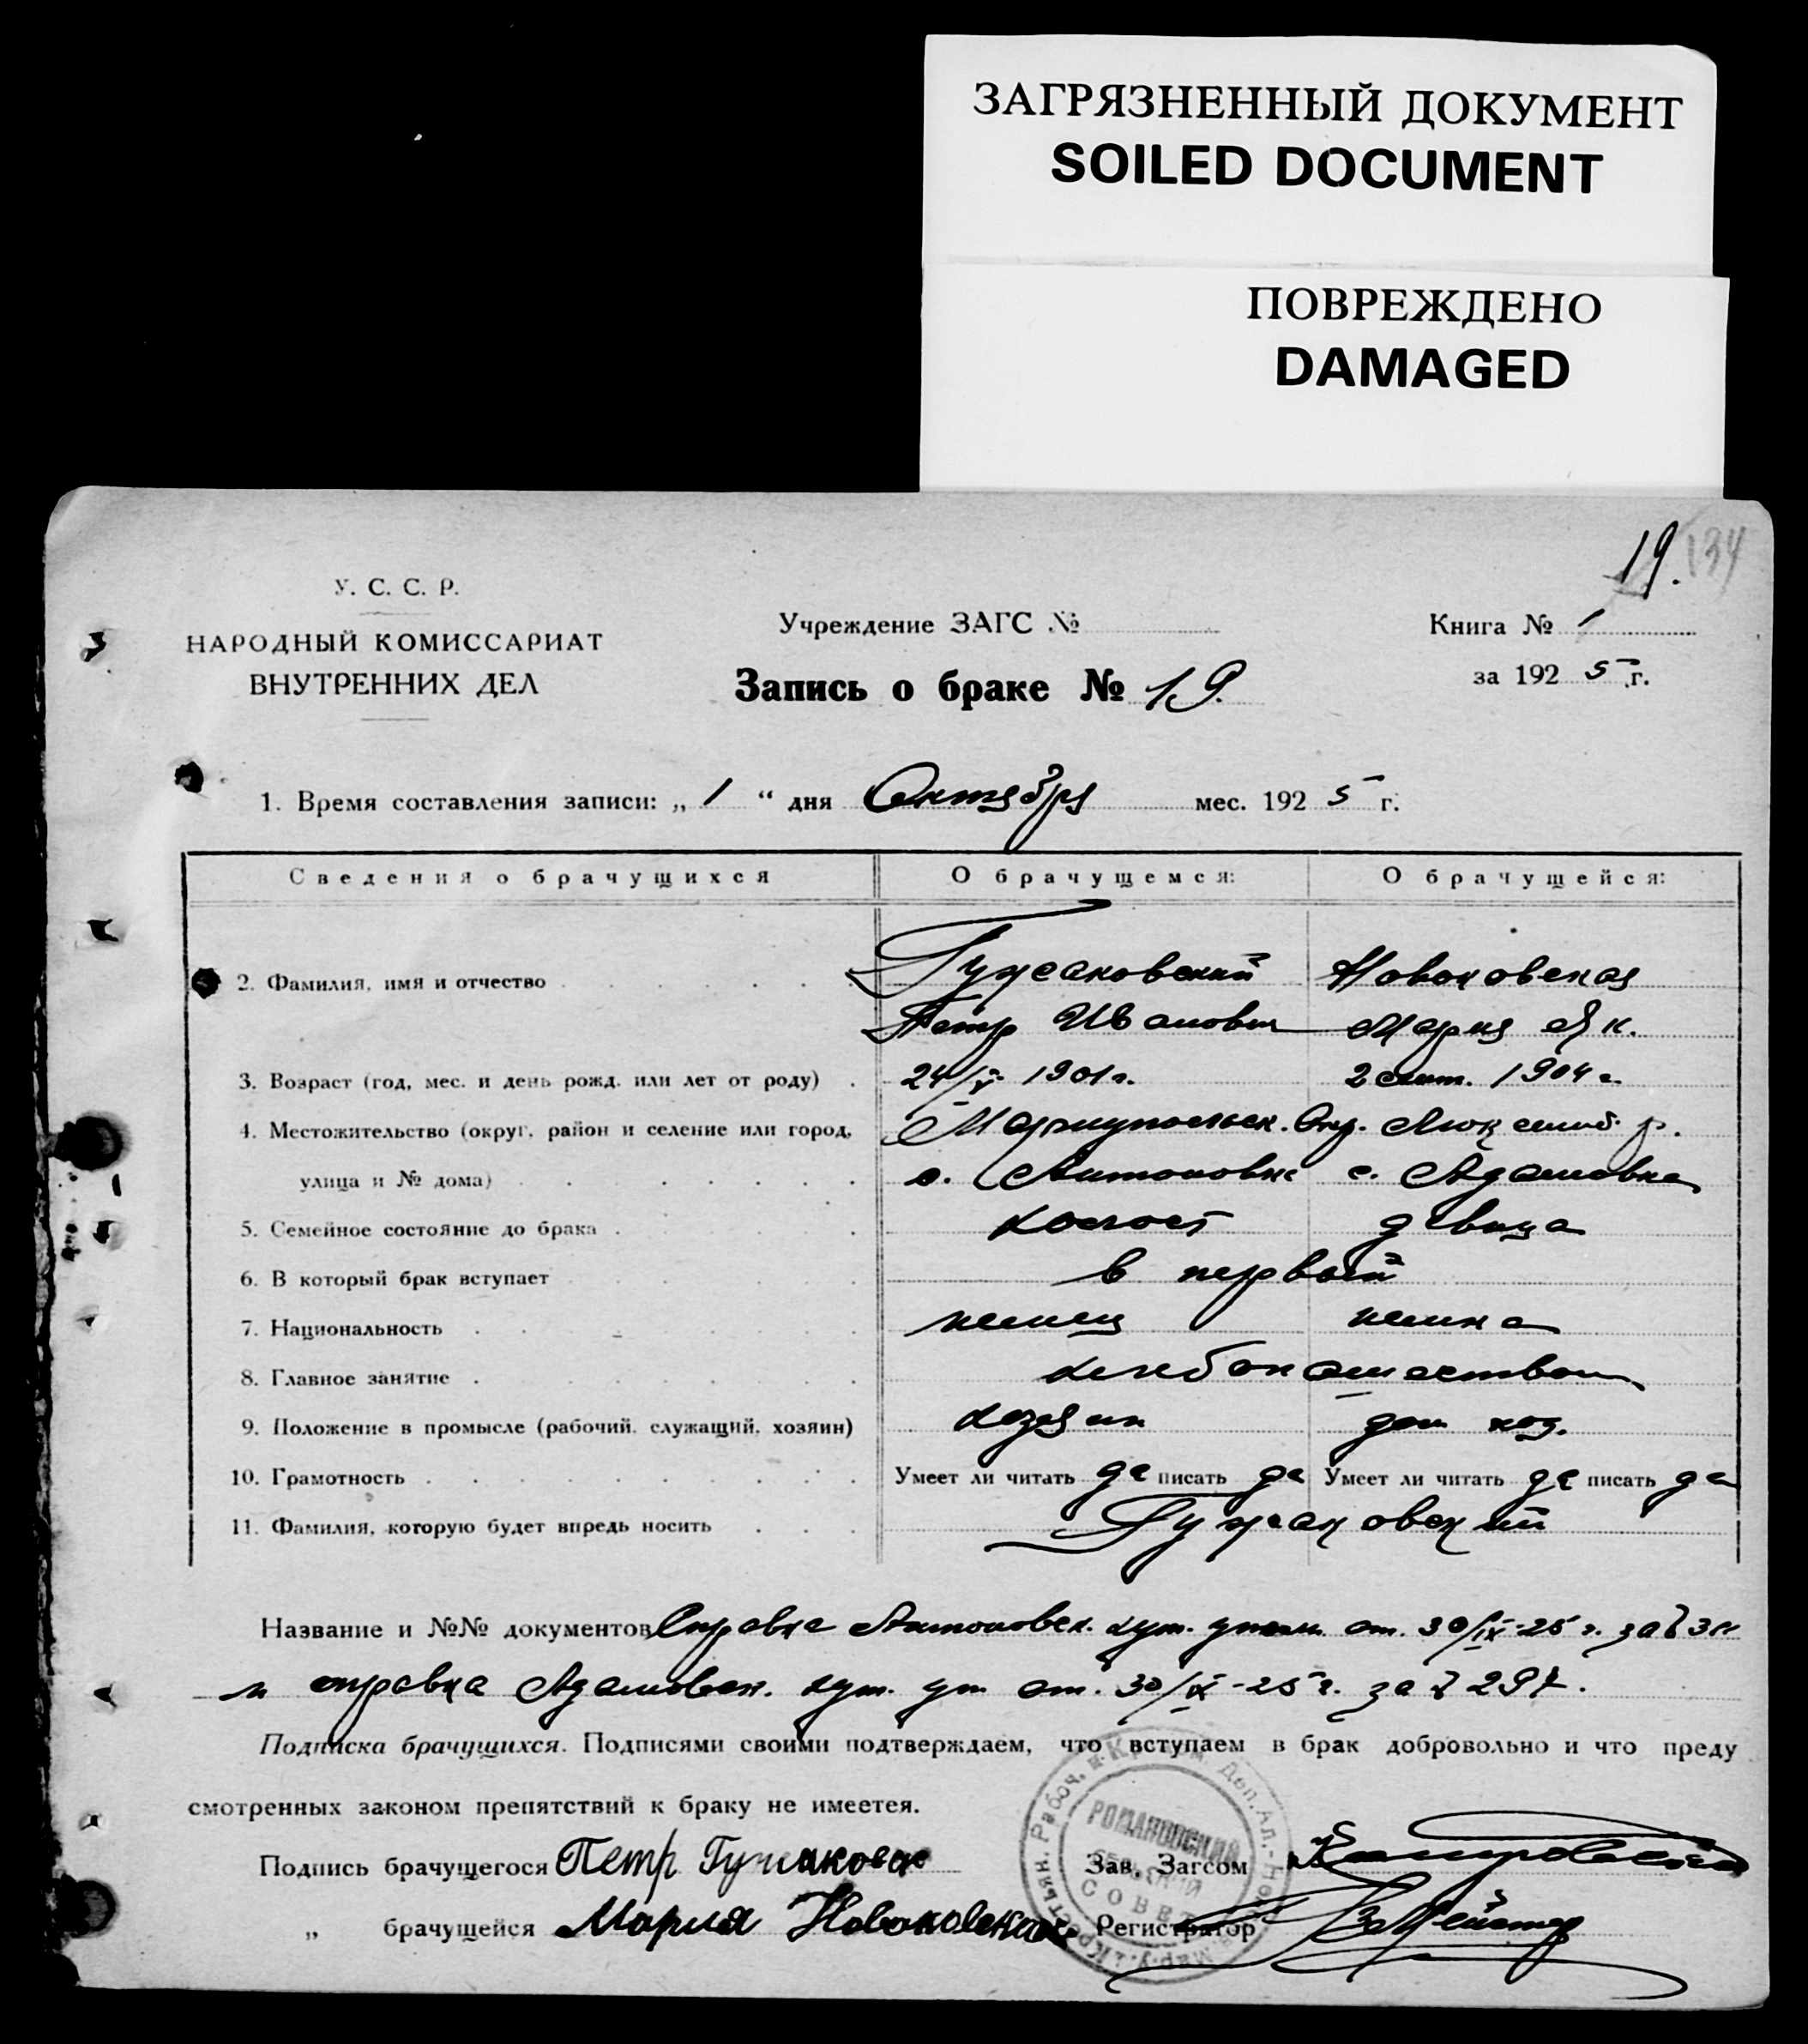 ЗАГРЯЗНЕННЫЙ ДОКУМЕНТ
SOILED DOCUMENT
ПОВРЕЖДЕНО
DAMAGED
19. 134
У. С. С. Р.
НАРОДНЫЙ КОМИССАРИАТ
ВНУТРЕННИХ ДЕЛ
Учреждение ЗАГС №
Запись о браке № 19.
Книга № 1
за 1925 г.
1. Время составления записи: „ 1 “ дня Октября мес. 1925 г.
Сведения о брачущихся О брачущемся: О брачущейся:
2. Фамилия, имя и отчество Гужаковский Новаковская
Петр Иванович Мария Як.
3. Возраст (год, мес. и день рожд. или лет от роду) 24/V 1901 г. 2 сент. 1904 г.
4. Местожительство (округ, район и селение или город, Мариупольск. Окр. Люксемб. р.
улица и № дома) с. Антоновка с. Адамовка
5. Семейное состояние до брака холост девица
6. В который брак вступает в первый
7. Национальность немец немка
8. Главное занятие хлебопашеством
9. Положение в промысле (рабочий, служащий, хозяин) хозяин дом хоз.
10. Грамотность Умеет ли читать да писать да Умеет ли читать да писать да
11. Фамилия, которую будет впредь носить Гужаковский
Название и №№ документов Справка Антоновск. хут. уполн. от. 30/IX-25 г. за №
и справка Адамовск. хут. уп от. 30/IX-25 г. за № 297.
Подписка брачущихся. Подписями своими подтверждаем, что вступаем в брак добровольно и что преду
смотренных законом препятствий к браку не имеется.
Подпись брачущегося Петр Гужаковск Зав. Загсом
„ брачущейся Мария Новаковская Регистратор
РОМАНОВСКИЙ
СЕЛЬСКИЙ
СОВЕТ